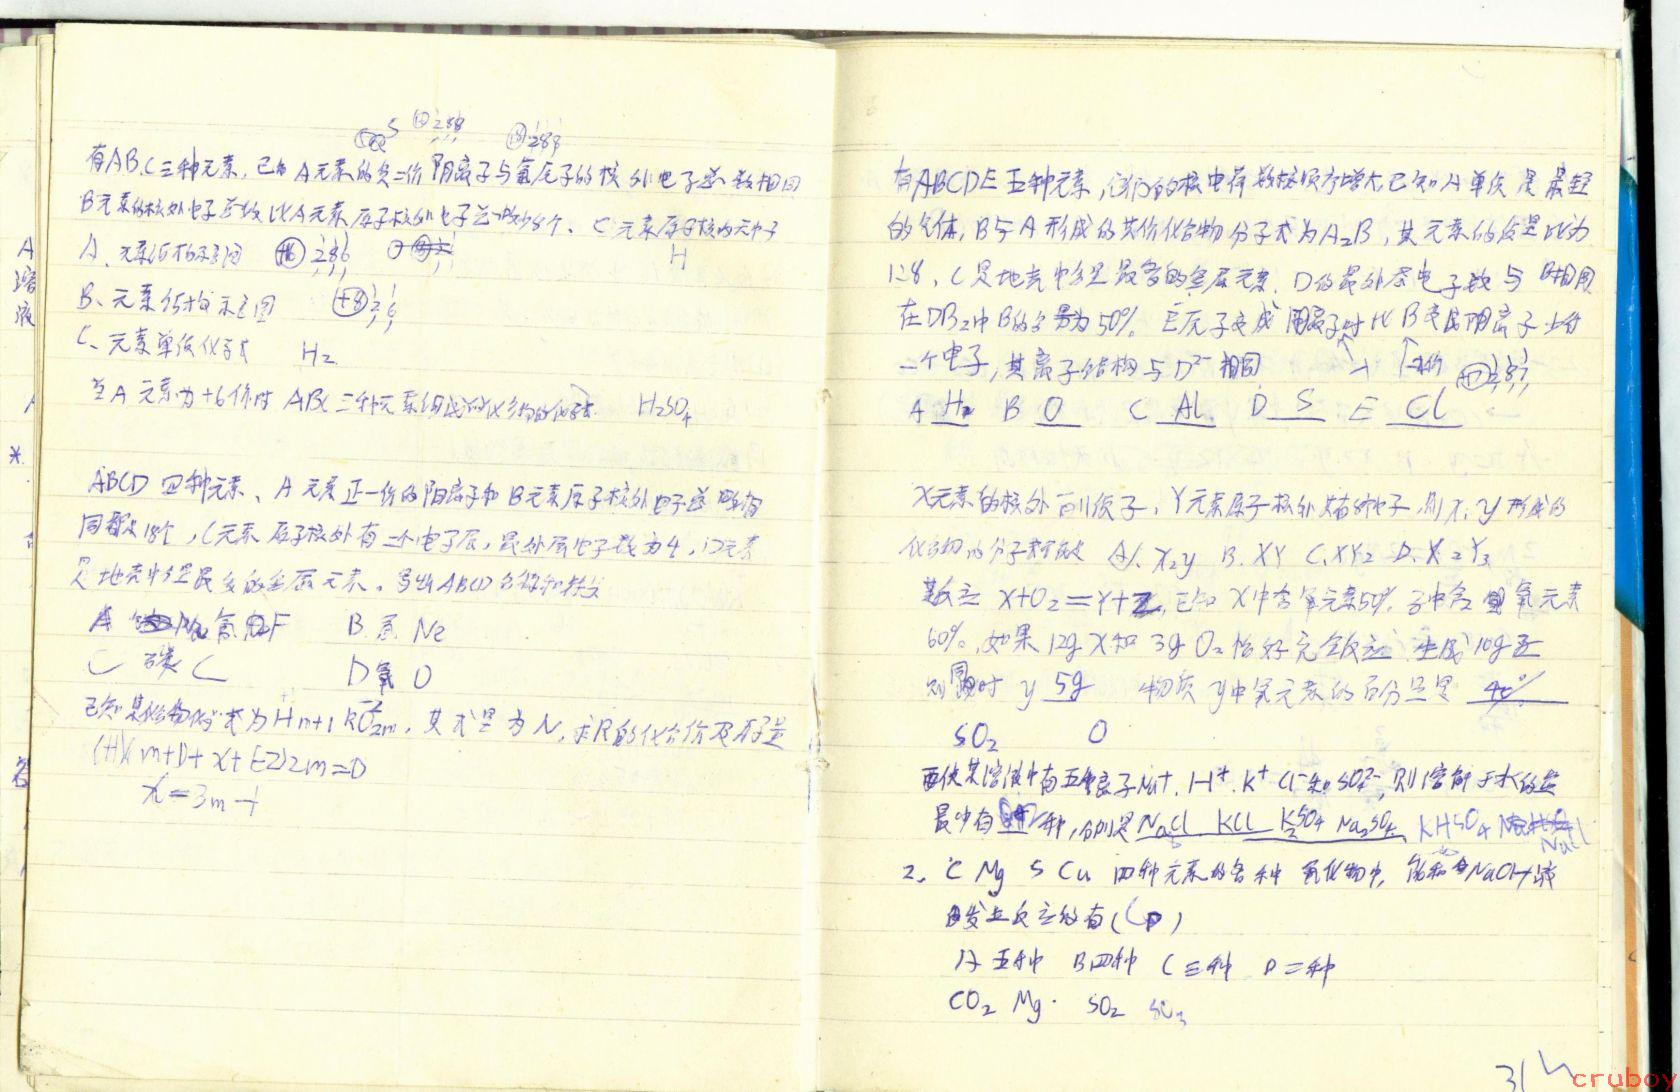 S +17 2 8 8 +18 2 8 8
有ABC三种元素,已知A元素的负二价阴离子与氩原子的核外电子总数相同
B元素的核外电子总数比A元素原子核外电子总数少8个、C元素原子核内无中子
A、元素结构示意图 +16 2 8 6 H
B、元素结构示意图 +8 2 6
C、元素单质化学式 H2
当A元素为+6价时ABC三种元素组成的化合物的化学式 H2SO4
ABCD四种元素、A元素正一价的阳离子和B元素原子核外电子总数相
同都是18个,C元素原子核外有二个电子层,最外层电子数为4,D元素
是地壳中含量最多的金属元素。写出ABCD名称和符号
A F B.氖 Ne
C 碳 C D氧 O
已知某化合物化学式为Hm+1RO2m,其式量为N,求R的化合价及原子量
(+1)(m+1)+x+(-2)2m=0
x=3m-1
有ABCDE五种元素,它们的核电荷数按顺序增大,已知A单质是最轻
的气体,B与A形成的共价化合物分子式为A2B,其元素的质量比为
1:8,C是地壳中含量最多的金属元素,D的最外层电子数与B相同
在DB2中B的含量为50%.E原子变成阴离子时比B变成阴离子少得
一个电子,其离子结构与D2-相同 -2价 +17 2 8 7
A H2 B O C Al D S E Cl
X元素的核外有11个质子,Y元素原子核外共有8个电子,则X,Y形成的
化合物的分子式可能是 A.X2Y B.XY C.XY2 D.X2Y3
某反应 X+O2=Y+Z,已知X中含氧元素50%.Z中含氧元素
60%,如果12gX和3gO2恰好完全反应 生成10gZ
则同时y 5g 物质y中氧元素的百分含量是 40%
SO2 O
要使某溶液中有五种离子Na+.H+.K+Cl-和SO42-,则溶解于水的盐
最少有 种,分别是NaCl KCl K2SO4 Na2SO4 KHSO4 NaCl
2、C Mg S Cu 四种元素的各种氧化物中,能和NaOH溶
液发生反应的有( )
A五种 B四种 C三种 D二种
CO2 Mg. SO2 SO3
31
cruboy